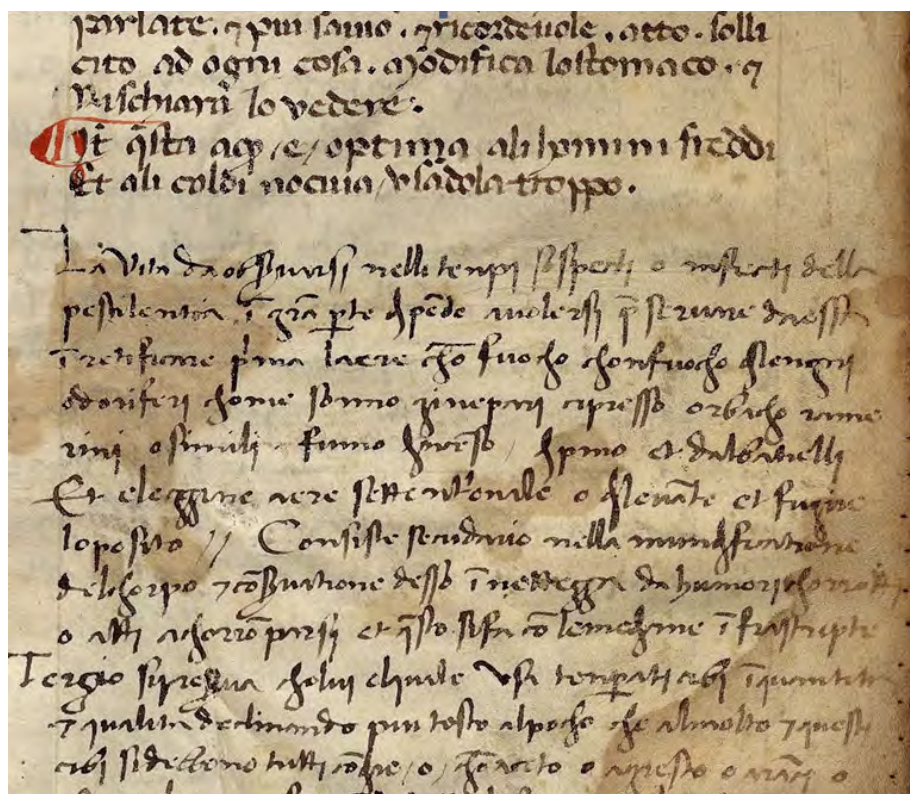 parlate . ⁊ piu savio . ⁊ ricordevole . atto . solli
cito ad ogni cosa . modifica lo stomaco . ⁊
Rischiara lo vedere .
Et q̄sta aq̄ /e/ optima ali homini freddi
Et ali coldi nociva / usadola troppo .
La vita da obs̄varsi nelli tenpi sospecti o infecti della
pestilentia ī grā p̄te dipēde avolersi p̄servare da essa
ī retificare p̄ma laere chō fuocho chon fuocho di lengni
odoriferi chome sonno ginepari cipresso orbacho rame
rini o simili fumo dinceso / dipino et dalbatielli
Et eleggire aere settentrionale o di levāte et fugire
loposito // Consiste secūdario nella mundificatione
del chorpo ⁊ cōs̄vatione desso ī nettezza da humori chorrotti
o atti a chorrōparsi et q̄sto si fa cō le medicine ī frascripte
Terzio si pres̄va cholui el quale usa tenperati cibi ī quantita
⁊ qualita declinando piu tosto al pocho che al molto ⁊ questi
cibi si debbeno tutti / o / chō aceto o agresto o arāci o